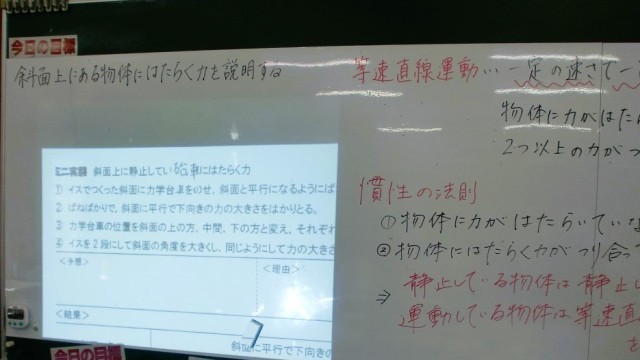 今日の目標
斜面上にある物体にはたらく力を説明する
ミニ実習 斜面上に静止している台車にはたらく力
① イスでつくった斜面に力学台車をのせ、斜面と平行になるようにば
② ばねばかりで、斜面に平行で下向きの力の大きさをはかりとる。
③ 力学台車の位置を斜面の上の方、中間、下の方と変え、それぞれ
④ イスを2段にして斜面の角度を大きくし、同じようにして力の大きさ
<予想>
<理由>
<結果>
斜面に平行で下向きの
今日の目標
等速直線運動… 一定の速さで一
物体に力がはた
2つ以上の力がつ
慣性の法則
① 物体に力がはたらいていな
② 物体にはたらく力がつり合っ
⇒ 静止している物体は静止し
運動している物体は等速直
を